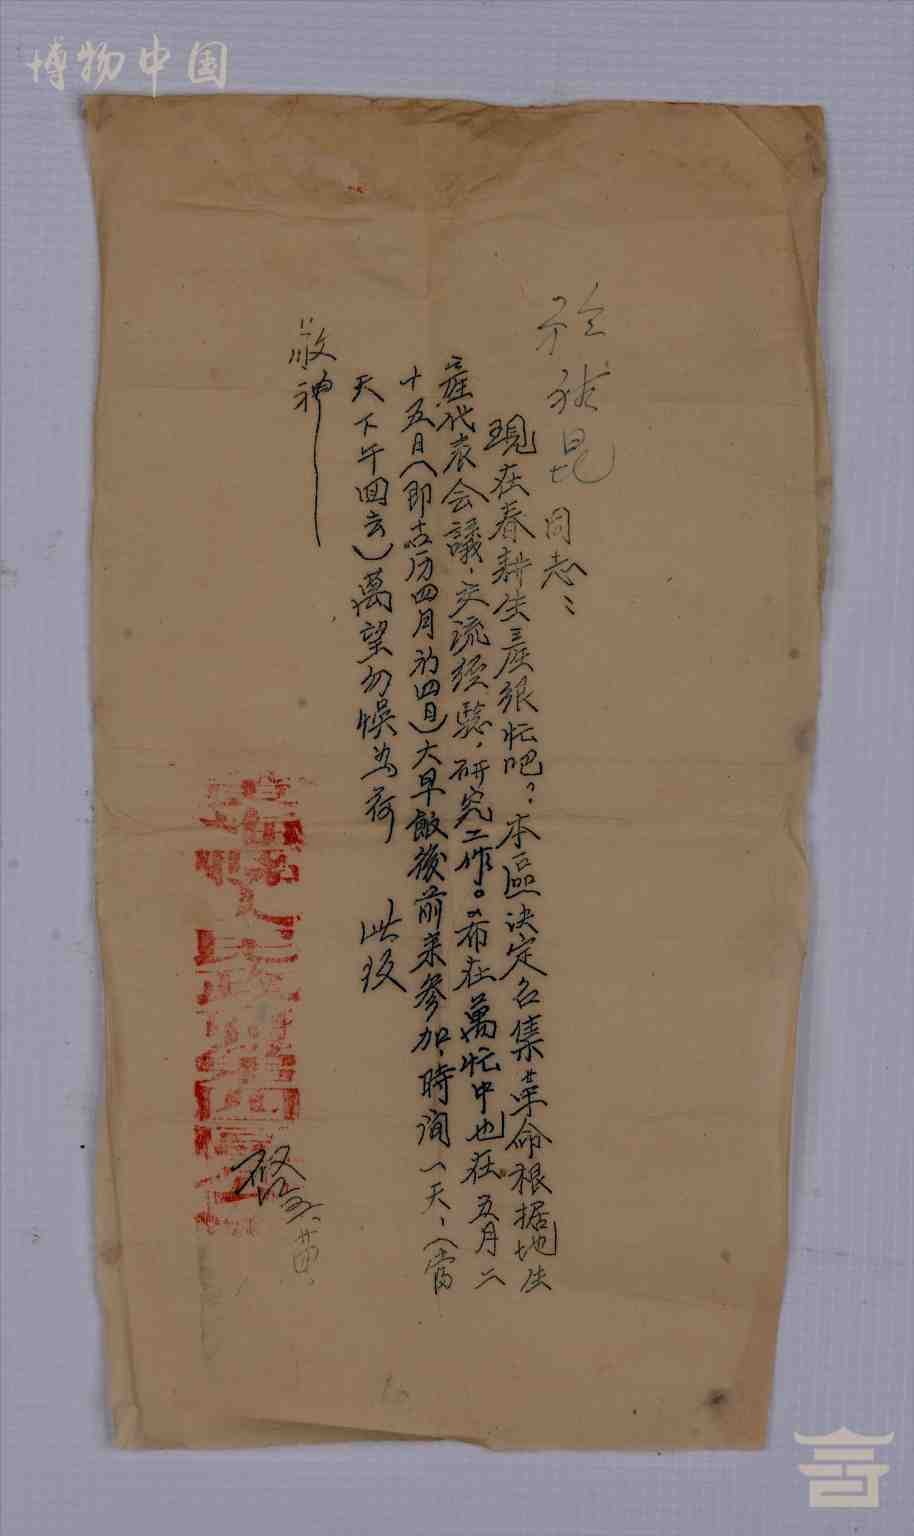 博物中国
同志:
現在春耕生産很忙吧?本區决定召集革命根据地生
産代表会議,交流经驗,研究工作。希在萬忙中也在五月二
十五日(即古历四月初四日)大早飯後前来參加,時间一天,(當
天下午回去)萬望勿悞為荷 此致
敬神
人民政府第四區
啓
黄